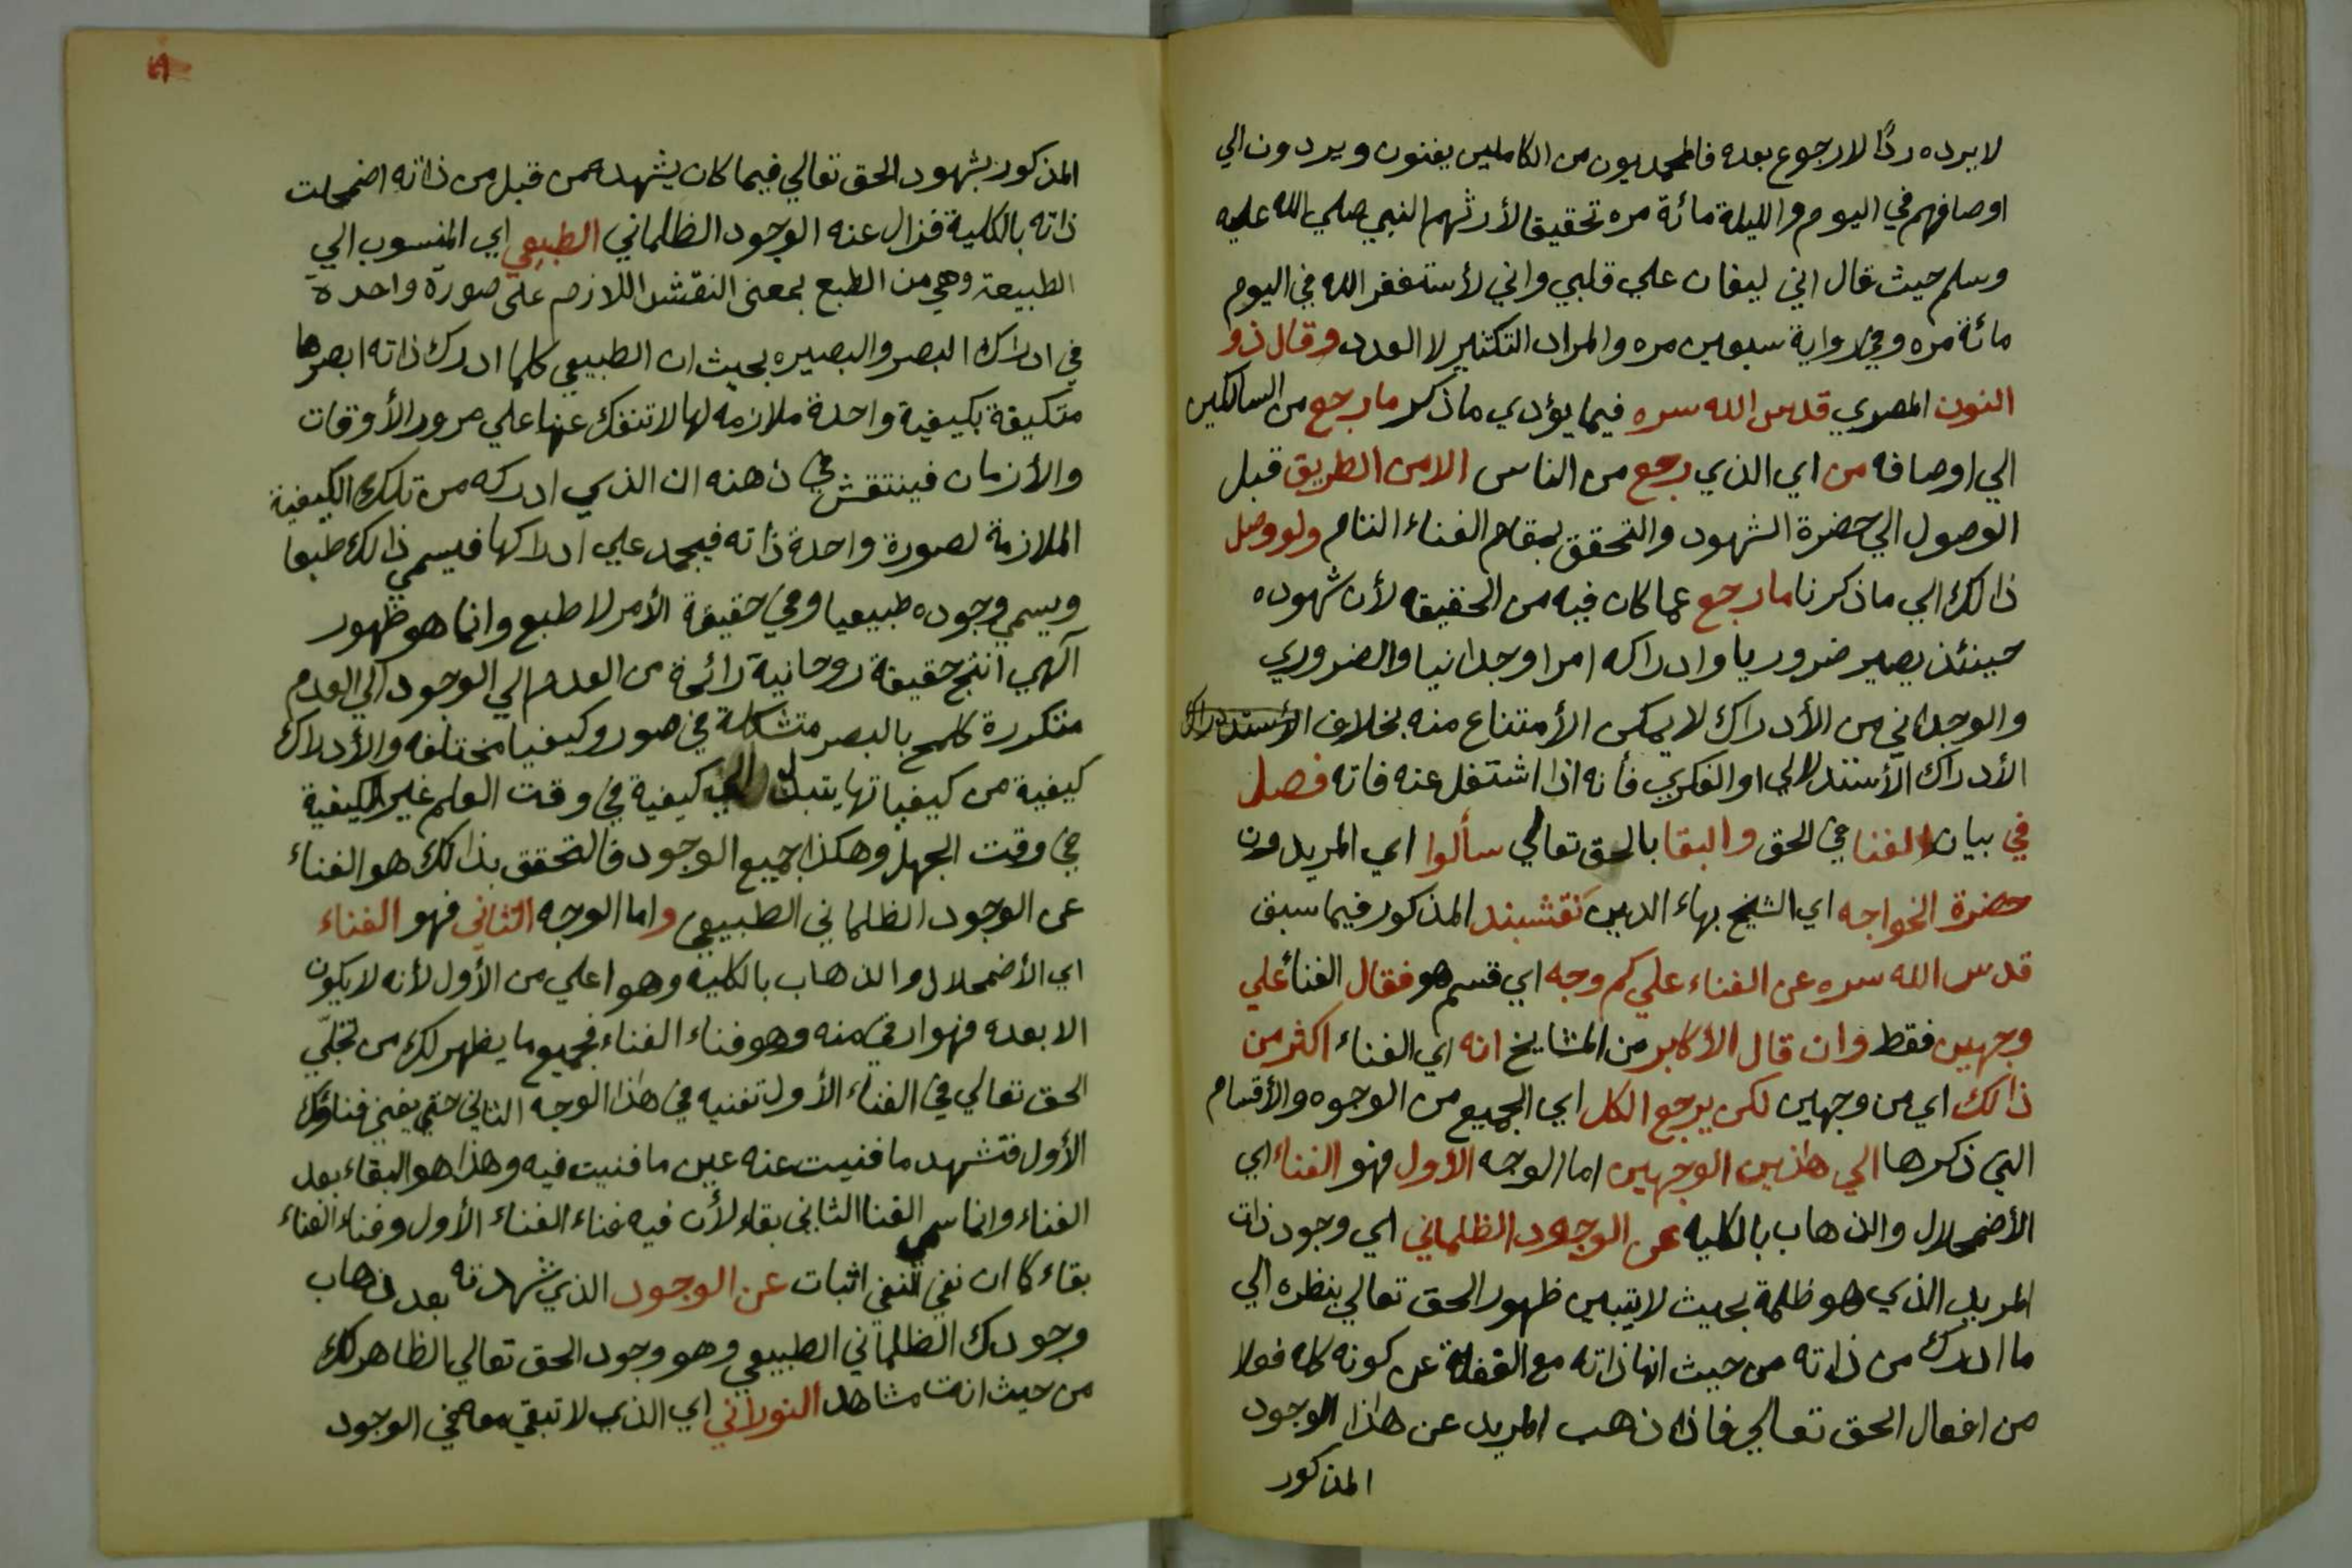 لا يرده ردًا لا رجوع بعده فالمحمديون من الكاملين يفنون ويردون الي
اوصافهم في اليوم والليلة مائة مره تحقيقا لأرثهم النبي صلي الله عليه
وسلم حيث قال اني ليغان علي قلبي واني لأستغفر الله في اليوم
مائة مره وفي رواية سبعين مره والمراد التكثير لا العدد وقال ذو
النون المصري قدس الله سره فيما يؤدي ما ذكر ما رجع من السالكين
الي اوصافه من اي الذي رجع من الناس الا من الطريق قبل
الوصول الي حضرة الشهود والتحقق بمقام الفناء التام ولو وصل
ذالك الي ما ذكرنا ما رجع عما كان فيه من الحقيقه لأن شهوده
حينئذ يصير ضروريا وادراكه امرا وجدانيا والضروري
والوجداني من الأدراك لا يمكن الأمتناع منه بخلاف
الأدراك الأستدلالي او الفكري فأنه اذا اشتغل عنه فاته فصل
في بيان الفنا في الحق والبقا بالحق تعالي سألوا اي المريدون
حضرة الخواجه اي الشيخ بهاء الدين نقشبند المذكور فيما سبق
قدس الله سره عن الفناء علي كم وجه اي قسم هو فقال الفنأ علي
وجهين فقط وان قال الأكابر من المشايخ انه اي الفناء اكثر من
ذالك اي من وجهين لكن يرجع الكل اي الجميع من الوجوه والأقسام
التي ذكرها الي هاذين الوجهين اما الوجه الأول فهو الفناء اي
الأضمحلال والذهاب بالكليه عن الوجود الظلماني اي وجود ذات
المريد الذي هو ظلمة بحيث لا يتبين ظهور الحق تعالي بنظره الي
ما ادرك من ذاته من حيث انها ذاته مع الغفلة عن كونه كله فعلا
من افعال الحق تعالي فاذا ذهب المريد عن هاذا الوجود
المذكور
المذكور بشهود الحق تعالي فيما كان يشهده من قبل من ذاته اضمحلت
ذاته بالكلية فزال عنه الوجود الظلماني الطبيعي اي المنسوب الي
الطبيعة وهي من الطبع بمعني النقش اللازم علي صورة واحدة
في ادراك البصر والبصيره بحيث ان الطبيعي كلما ادرك ذاته ابصرها
متكيفة بكيفية واحدة ملازمه لها لا تنفك عنها علي مرور الأوقات
والأزمان فينتقش في ذهنه ان الذي ادركه من تلك الكيفية
الملازمة لصورة واحدة ذاته فيجمد علي ادراكها فيسمي ذالك طبعا
ويسمي وجوده طبيعيا وفي حقيقة الأمر لا طبع وانما هو ظهور
آلهي انتج حقيقة روحانية من العدم الي الوجود الي العدم
متكررة كلمح بالبصر متشكلة في صور وكيفيا مختلفه والأدراك
كيفية من كيفياتها يتبدل الي كيفية في وقت العلم غير الكيفية
في وقت الجهل وهكذا جميع الوجود فالتحقق بذالك هو الفناء
عن الوجود الظلماني الطبيعي واما الوجه الثاني فهو الفناء
اي الأضمحلال والذهاب بالكليه وهو اعلي من الأول لأنه لا يكون
الا بعده فهو ارقي منه وهو فناء الفناء فجميع ما يظهر لك من تجلّي
الحق تعالي في الفناء الأول تفنيه في هاذا الوجه الثاني حتي يفني فناؤك
الأول فتشهد ما فنيت عنه عين ما فنيت فيه وهذا هو البقاء بعد
الفناء وانما سمي الفنا الثاني بقاء لأن فيه فناء الفناء الأول وفناء الفناء
بقاء كما ان نفي النفي اثبات عن الوجود الذي شهدته بعد ذهاب
وجودك الظلماني الطبيعي وهو وجود الحق تعالي الظاهر لك
من حيث انت مشاهد النوراني اي الذي لا تبقي معه في الوجود